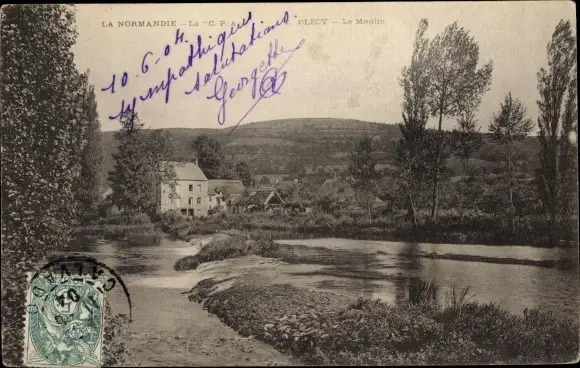 LA NORMANDIE - La "C. P. A CLÉCY - Le Moulin
10-6-04. sympathiques
salutations
Georgette